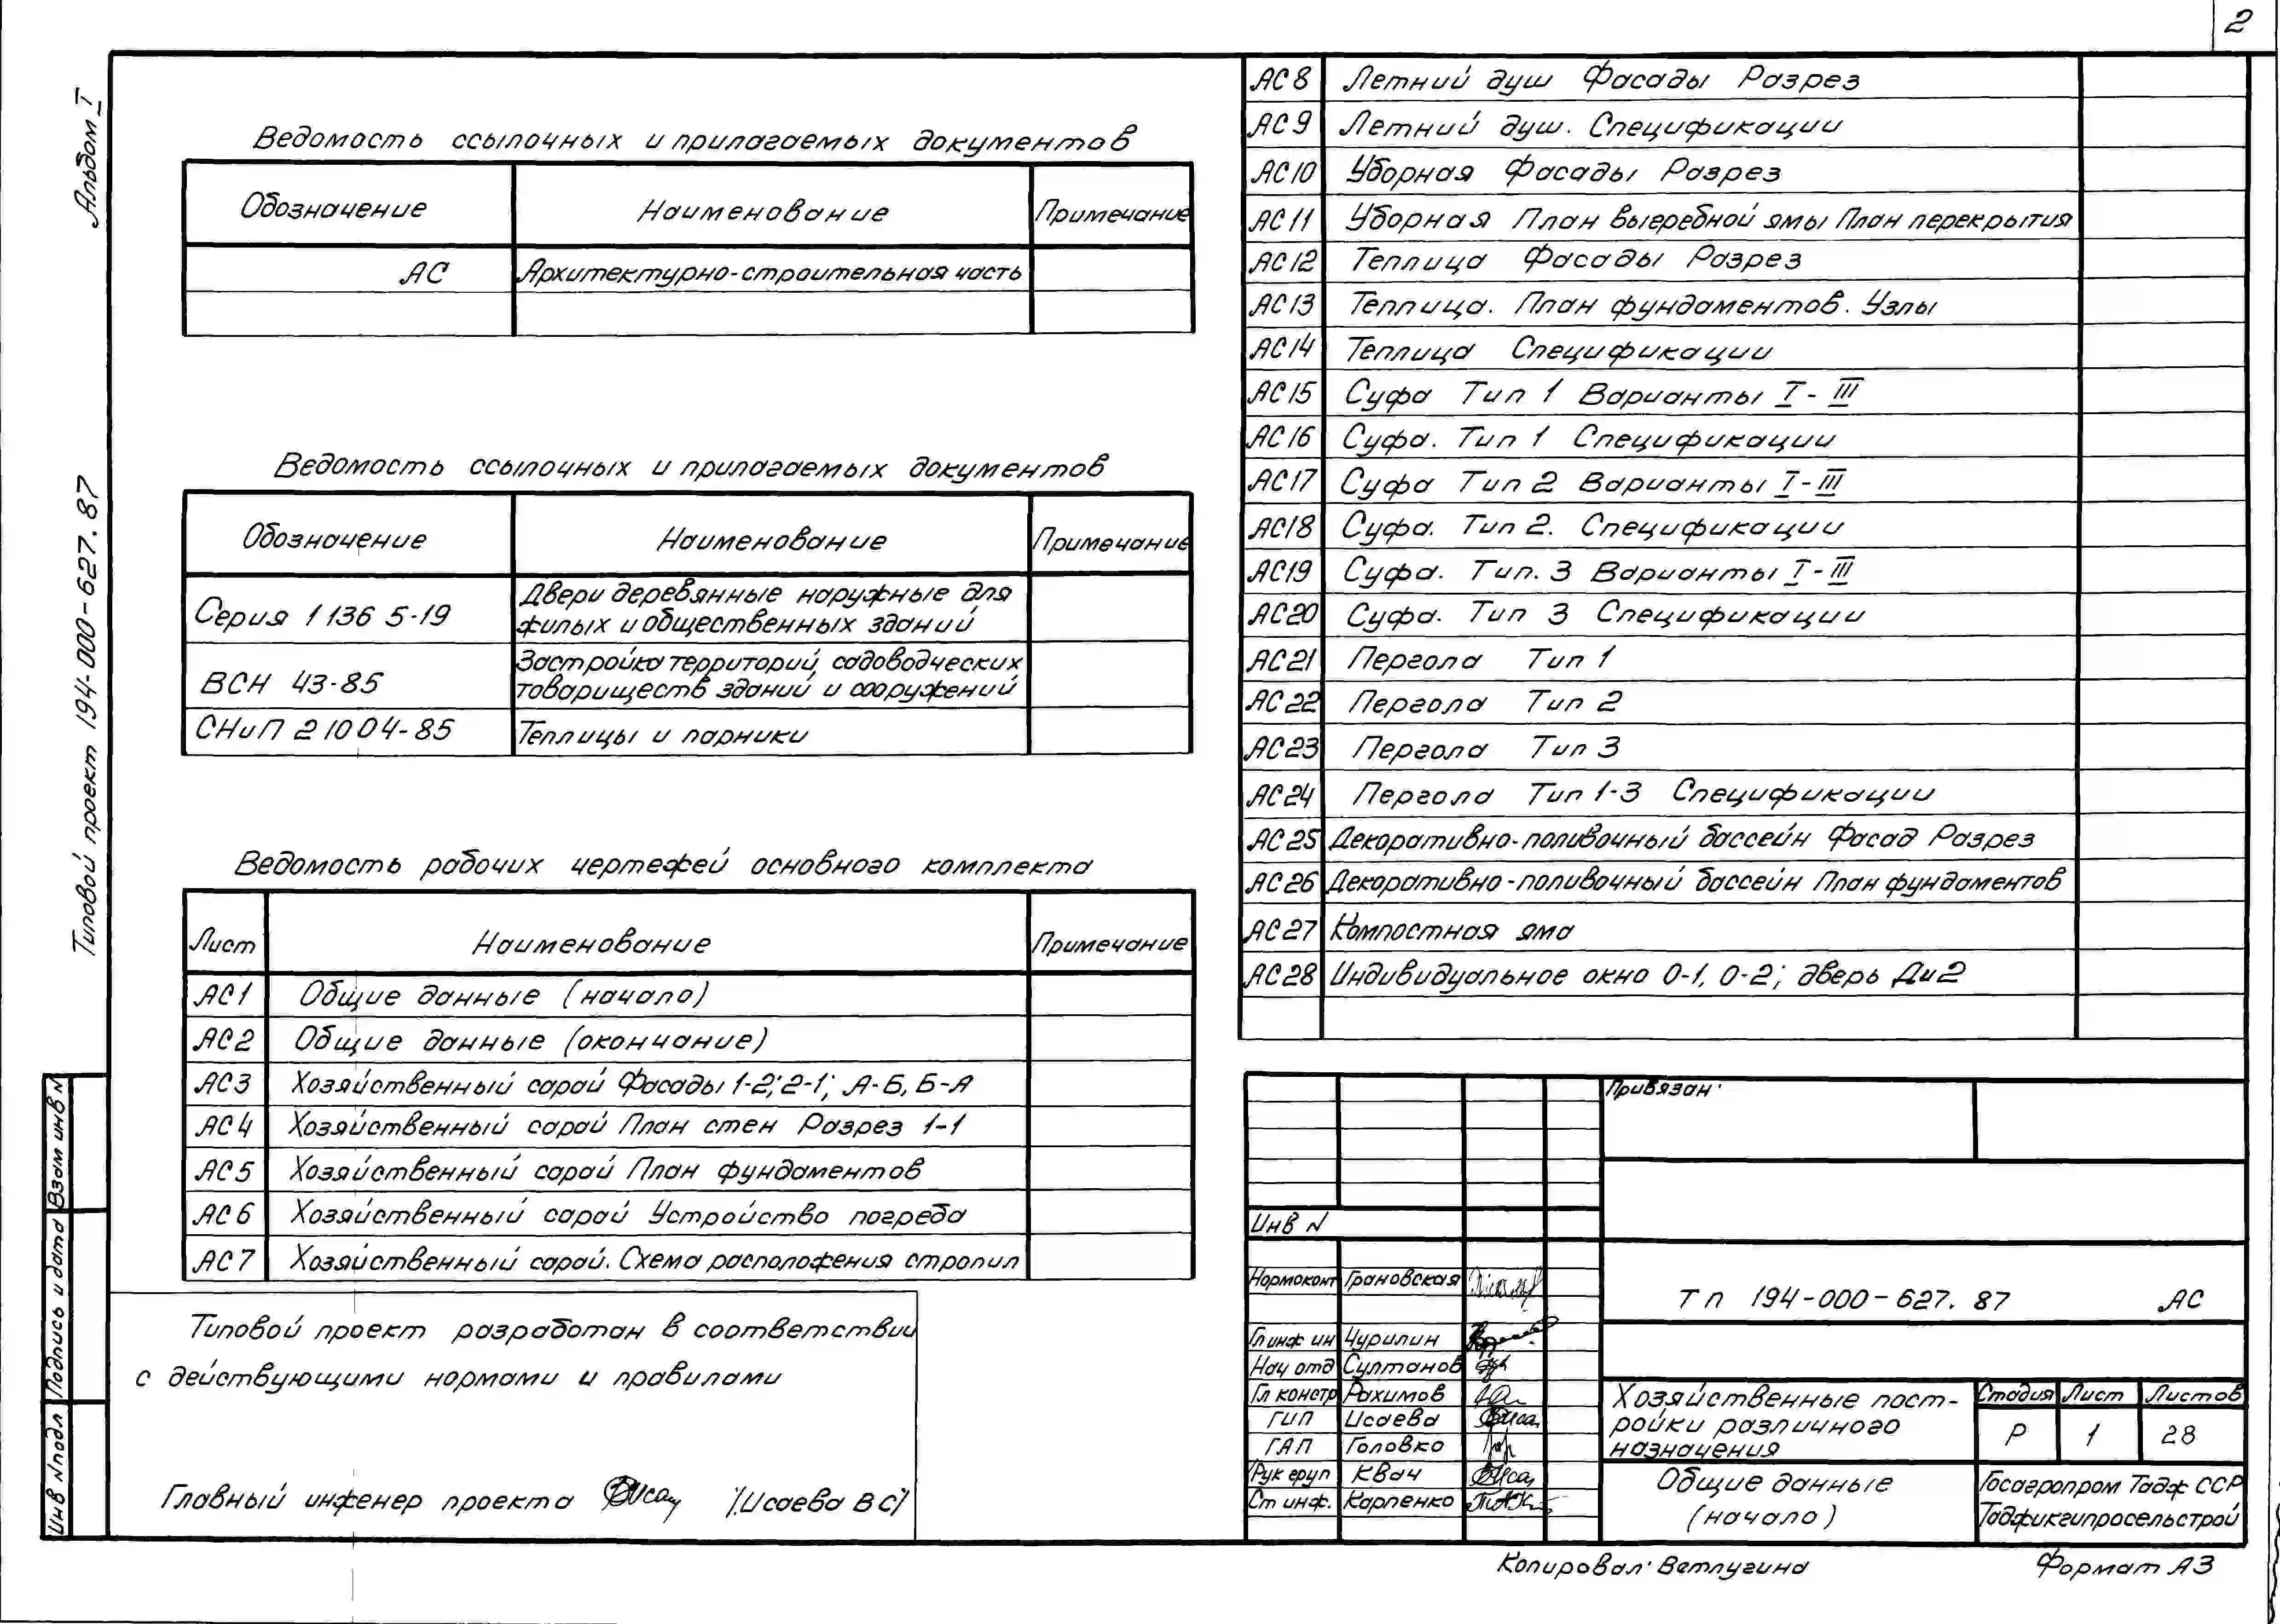 2
Альбом I
Типовой проект 194-000-627.87
Взам инв N
Подпись и дата
Инв N подл
Ведомость ссылочных и прилагаемых документов
Обозначение Наименование Примечание
АС Архитектурно-строительная часть
Ведомость ссылочных и прилагаемых документов
Обозначение Наименование Примечание
Серия 1 136 5-19 Двери деревянные наружные для
жилых и общественных зданий
ВСН 43-85 Застройка территорий, садоводческих
товариществ зданий и сооружений
СНиП 2 10 04-85 Теплицы и парники
Ведомость рабочих чертежей основного комплекта
Лист Наименование Примечание
АС1 Общие данные (начало)
АС2 Общие данные (окончание)
АС3 Хозяйственный сарай Фасады 1-2; 2-1; А-Б, Б-А
АС4 Хозяйственный сарай План стен Разрез 1-1
АС5 Хозяйственный сарай План фундаментов
АС6 Хозяйственный сарай Устройство погреба
АС7 Хозяйственный сарай. Схема расположения стропил
Типовой проект разработан в соответствии
с действующими нормами и правилами
Главный инженер проекта /Исаева В С/
АС8 Летний душ Фасады Разрез
АС9 Летний душ. Спецификации
АС10 Уборная Фасады Разрез
АС11 Уборная План выгребной ямы План перекрытия
АС12 Теплица Фасады Разрез
АС13 Теплица. План фундаментов. Узлы
АС14 Теплица Спецификации
АС15 Суфа Тип 1 Варианты I-III
АС16 Суфа. Тип 1 Спецификации
АС17 Суфа Тип 2 Варианты I-III
АС18 Суфа. Тип 2. Спецификации
АС19 Суфа. Тип. 3 Варианты I-III
АС20 Суфа. Тип 3 Спецификации
АС21 Пергола Тип 1
АС22 Пергола Тип 2
АС23 Пергола Тип 3
АС24 Пергола Тип 1-3 Спецификации
АС25 Декоративно-поливочный бассейн Фасад Разрез
АС26 Декоративно-поливочный бассейн План фундаментов
АС27 Компостная яма
АС28 Индивидуальное окно О-1, О-2; дверь Ди2
Привязан:
Инв N
Нормоконт Грановская
Гл инж ин Чурилин
Нач отд Султанов
Гл констр Рахимов
ГИП Исаева
ГАП Головко
Рук груп Квач
Ст инж. Карпенко
ТП 194-000-627.87 АС
Хозяйственные пост-
ройки различного
назначения
Стадия Лист Листов
Р 1 28
Общие данные
(начало)
Госагропром Тадж ССР
Таджикгипросельстрой
Копировал: Ветлугина Формат А3